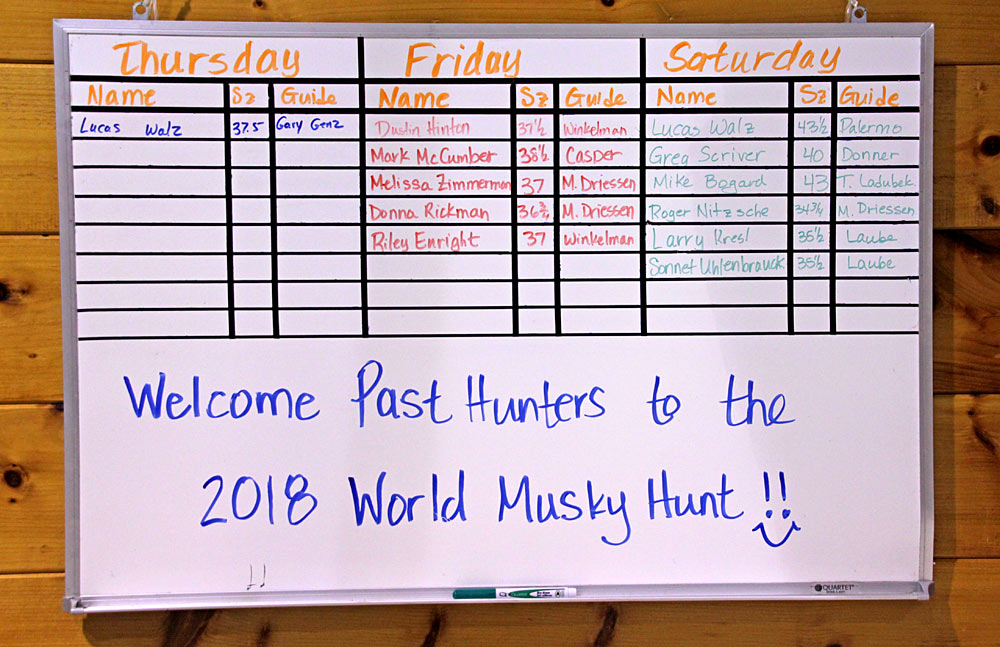 Thursday Friday Saturday
Name Sz Guide Name Sz Guide Name Sz Guide
Lucas Walz 37.5 Gary Genz Dustin Hinton 37½ Winkelman Lucas Walz 43½ Palermo
Mark McCumber 38½ Casper Greg Scriver 40 Donner
Melissa Zimmerman 37 M. Driessen Mike Bogard 43 T. Ladubek
Donna Rickman 36¾ M. Driessen Roger Nitzsche 34¾ M. Driessen
Riley Enright 37 Winkelman Larry Kresl 35½ Laube
Sonnet Uhlenbrauck 35½ Laube
Welcome Past Hunters to the
2018 World Musky Hunt !!
QUARTET